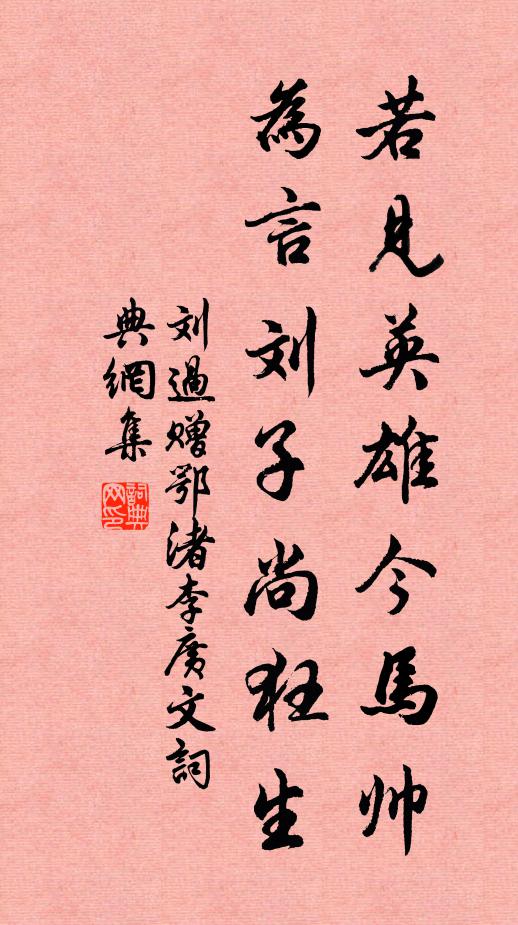 若見英雄今馬帅
為言刘子尚狂生
刘過赠鄂渚李廣文詞
典網集
詞典网印